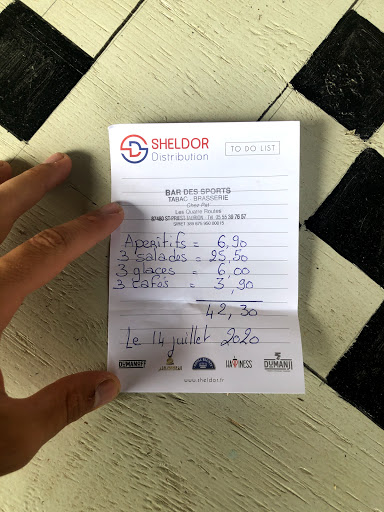 SHELDOR
Distribution
TO DO LIST
BAR DES SPORTS
TABAC - BRASSERIE
Chez Pat
Les Quatre Routes
Aperitifs = 6,90
3 salades = 25,50
3 glaces = 6,00
3 cafés = 3,90
42,30
Le 14 juillet 2020
HAPPINESS
DUMANJI
www.sheldor.fr